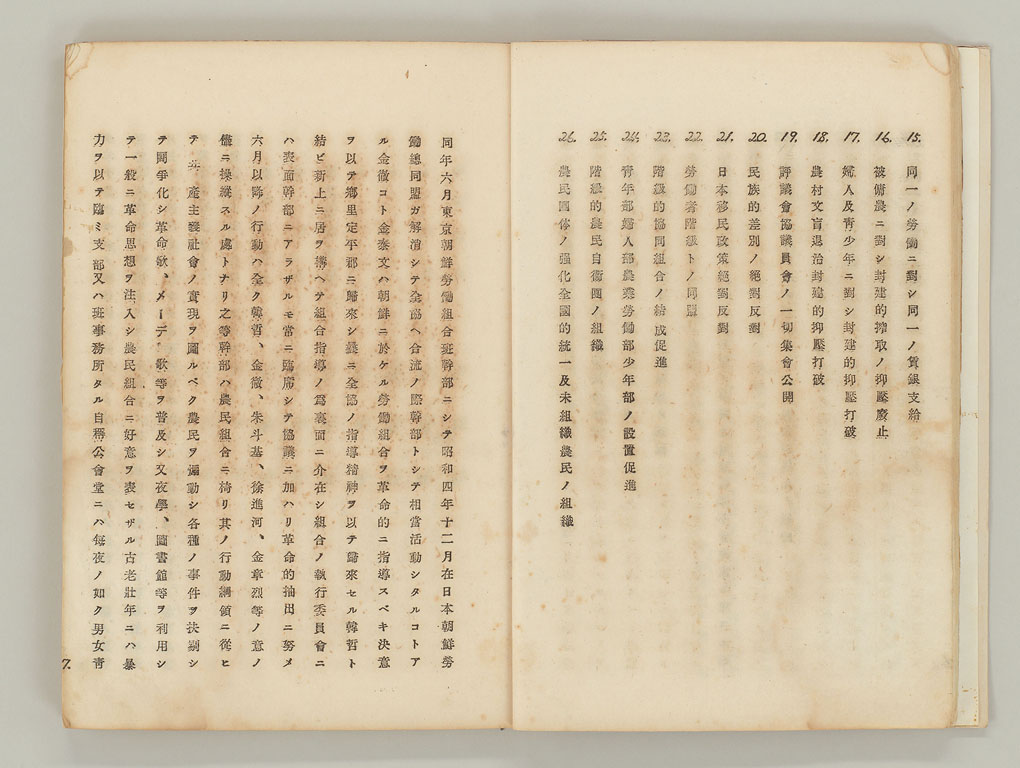 15. 同一ノ勞働ニ對シ同一ノ賃銀支給
16. 被傭農ニ對シ封建的搾取ノ抑壓廢止
17. 婦人及青少年ニ對シ封建的抑壓打破
18. 農村文盲退治封建的抑壓打破
19. 評議會協議員會ノ一切集會公開
20. 民族的差別ノ絶對反對
21. 日本移民政策絶對反對
22. 勞働者階級トノ同盟
23. 階級的協同組合ノ結成促進
24. 青年部婦人部農業勞働部少年部ノ設置促進
25. 階級的農民自衛團ノ組織
26. 農民團体ノ强化全國的統一及未組織農民ノ組織
同年六月東京朝鮮勞働組合班幹部ニシテ昭和四年十二月在日本朝鮮勞
働總同盟ガ解消シテ全協ヘ合流ノ際幹部トシテ相當活動シタルコトア
ル金徹コト金泰文ハ朝鮮ニ於ケル勞働組合ヲ革命的ニ指導スベキ決意
ヲ以テ鄕里定平郡ニ歸來シ曩ニ全協ノ指導精神ヲ以テ歸來セル韓哲ト
結ビ新上ニ居ヲ構ヘテ組合指導ノ爲裏面ニ介在シ組合ノ執行委員會ニ
ハ表面幹部ニアラザルモ常ニ臨席シテ協議ニ加ハリ革命的抽出ニ努メ
六月以降ノ行動ハ全ク韓哲、金徹、朱斗基、徐進河、金章烈等ノ意ノ
儘ニ操縱スル處トナリ之等幹部ハ農民組合ニ椅リ其ノ行動綱領ニ從ヒ
テ共產主義社會ノ實現ヲ圖ルベク農民ヲ煽動シ各種ノ事件ヲ抉剔シ
テ鬪爭化シ革命歌、メーデー歌等ヲ普及シ又夜學、圖書館等ヲ利用シ
テ一般ニ革命思想ヲ注入シ農民組合ニ好意ヲ表セザル古老壯年ニハ暴
力ヲ以テ臨ミ支部又ハ班事務所タル自稱公會堂ニハ每夜ノ如ク男女靑
7.